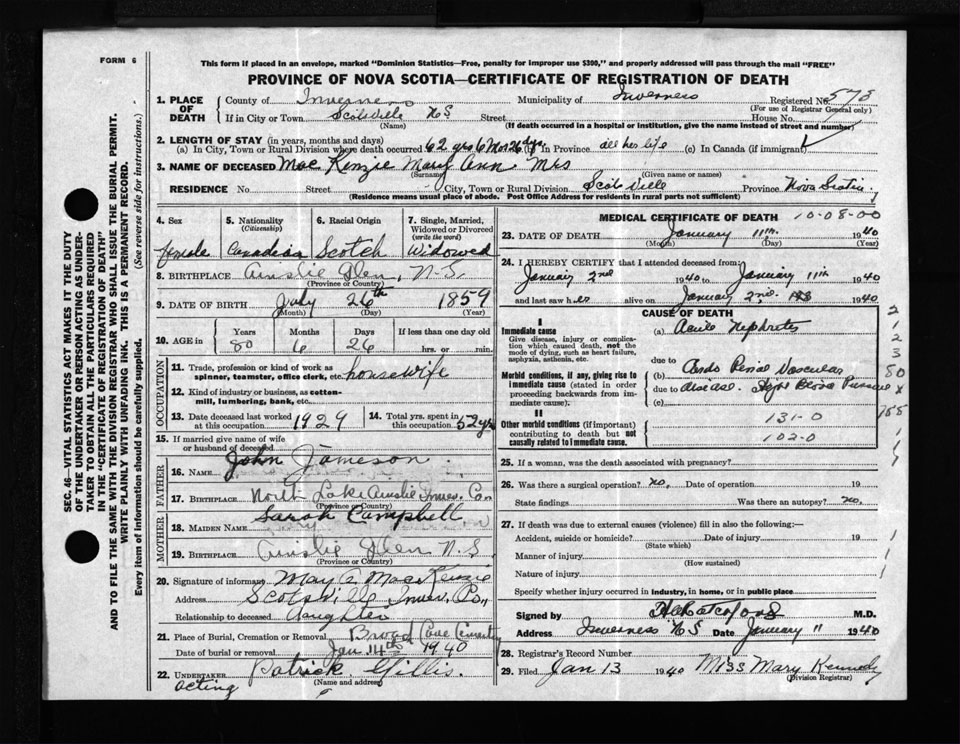 FORM 6
This form if placed in an envelope, marked "Dominion Statistics—Free, penalty for improper use $300," and properly addressed will pass through the mail "FREE"
PROVINCE OF NOVA SCOTIA—CERTIFICATE OF REGISTRATION OF DEATH
1. PLACE OF DEATH County of Inverness Municipality of Inverness Registered No. 573
(For use of Registrar General only)
If in City or Town Scotsville N S Street House No.
(Name) (If death occurred in a hospital or institution, give the name instead of street and number)
2. LENGTH OF STAY (in years, months and days)
(a) In City, Town or Rural Division where death occurred 62 yrs 6 Mos 26 dys (b) in Province all her life (c) In Canada (if immigrant)
3. NAME OF DECEASED Mac Kenzie Mary Ann Mrs
(Surname) (Given name or names)
RESIDENCE No. Street City, Town or Rural Division Scotsville Province Nova Scotia
(Residence means usual place of abode. Post Office Address for residents in rural parts not sufficient)
4. Sex female
5. Nationality (Citizenship) Canadian
6. Racial Origin Scotch
7. Single, Married, Widowed or Divorced (write the word) Widowed
8. BIRTHPLACE Ainslie Glen, N.S.
(Province or Country)
9. DATE OF BIRTH July 26th 1859
(Month) (Day) (Year)
10. AGE in Years Months Days If less than one day old
80 6 26 hrs. or min.
OCCUPATION
11. Trade, profession or kind of work as spinner, teamster, office clerk, etc. housewife
12. Kind of industry or business, as cotton-mill, lumbering, bank, etc.
13. Date deceased last worked at this occupation 1929
14. Total yrs. spent in this occupation 52 yrs
15. If married give name of wife or husband of deceased
FATHER
16. NAME John Jameson
17. BIRTHPLACE North Lake Ainslie Inver. Co
(Province or Country)
MOTHER
18. MAIDEN NAME Sarah Campbell
19. BIRTHPLACE Ainslie Glen N.S.
(Province or Country)
20. Signature of informant May C MacKenzie
Address Scotsville Inver. Co.,
Relationship to deceased daughter
21. Place of Burial, Cremation or Removal Broad Cove Cemetery
Date of burial or removal Jan 14th 1940
22. UNDERTAKER Patrick Gillis
acting (Name and address)
MEDICAL CERTIFICATE OF DEATH 10-08-00
23. DATE OF DEATH January 11th 1940
(Month) (Day) (Year)
24. I HEREBY CERTIFY that I attended deceased from:
January 2nd 1940 to January 11th 1940
and last saw her alive on January 2nd 1940
CAUSE OF DEATH
I
Immediate cause (a) Acute Nephritis
Give disease, injury or complication which caused death, not the mode of dying, such as heart failure, asphyxia, asthenia, etc.
due to
Morbid conditions, if any, giving rise to immediate cause (stated in order proceeding backwards from immediate cause). (b) Cardo Renal Vascular
due to disease.
(c)
II
Other morbid conditions (if important) contributing to death but not causally related to immediate cause.
131-0
102-0
25. If a woman, was the death associated with pregnancy?
26. Was there a surgical operation? no. Date of operation 19
State findings Was there an autopsy? no.
27. If death was due to external causes (violence) fill in also the following:—
Accident, suicide or homicide? Date of injury 19
(State which)
Manner of injury
(How sustained)
Nature of injury
Specify whether injury occurred in industry, in home, or in public place
Signed by M.D.
Address Inverness N S Date January 11 1940
28. Registrar's Record Number
29. Filed Jan 13 1940 Miss Mary Kennedy
(Division Registrar)
SEC. 46—VITAL STATISTICS ACT MAKES IT THE DUTY
OF THE UNDERTAKER OR PERSON ACTING AS UNDERTAKER TO OBTAIN ALL THE PARTICULARS REQUIRED
IN THE "CERTIFICATE OF REGISTRATION OF DEATH"
AND TO FILE THE SAME WITH THE DIVISION REGISTRAR WHO SHALL ISSUE THE BURIAL PERMIT.
WRITE PLAINLY WITH UNFADING INK. THIS IS A PERMANENT RECORD.
Every item of information should be carefully supplied. (See reverse side for instructions.)